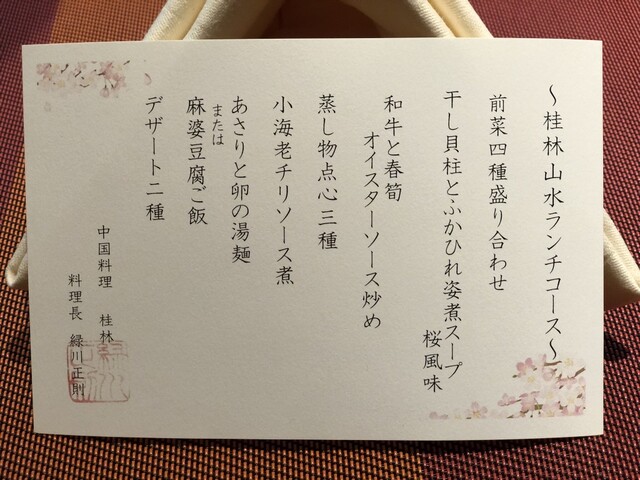 ～桂林山水ランチコース～
前菜四種盛り合わせ
干し貝柱とふかひれ姿煮スープ
桜風味
和牛と春筍
オイスターソース炒め
蒸し物点心三種
小海老チリソース煮
あさりと卵の湯麺
または
麻婆豆腐ご飯
デザート二種
中国料理 桂林
料理長 緑川正則